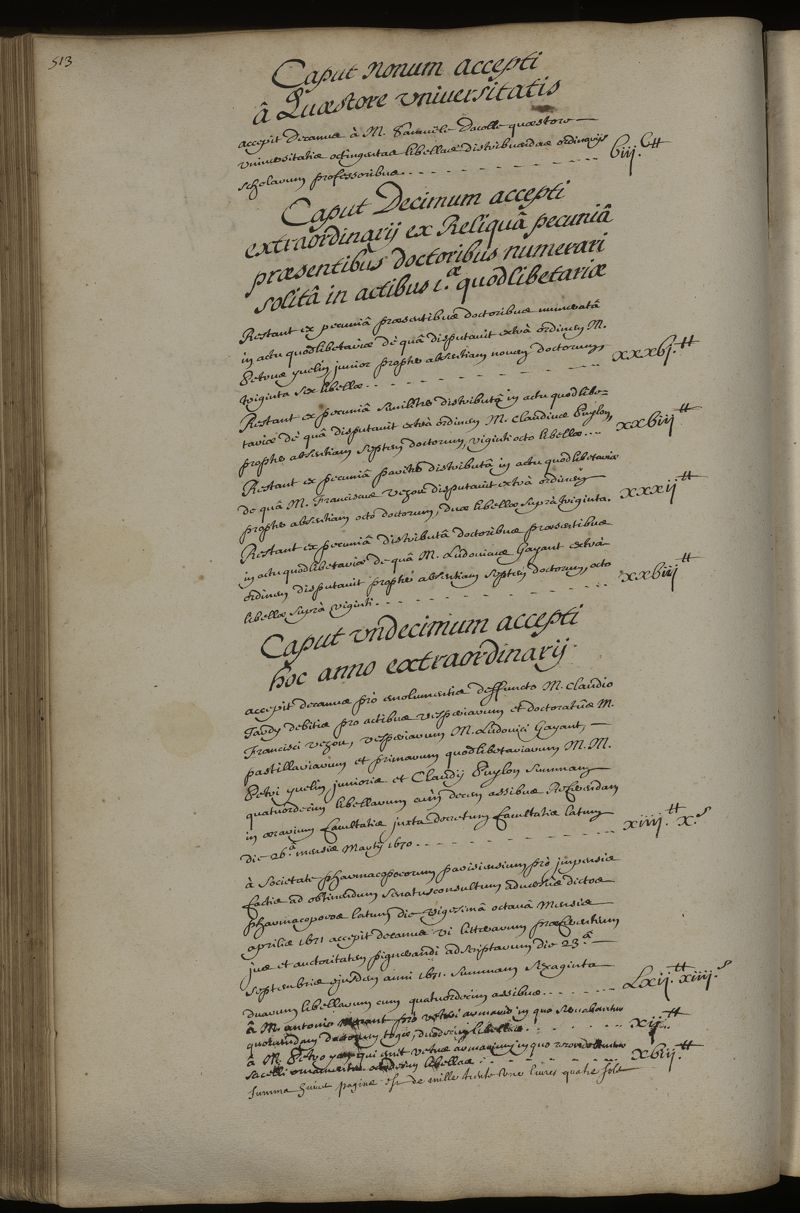 513
Caput nonum accepti
â Quæstore vniuersitatis
accepit Decanus à M. Samuële Dacolle quæstore
vniuersitatis octingentas libellas distribuendas ordinarijs
scholarum professoribus. - - - - - - - - - - biij.C ₶
Caput Decimum accepti
extraordinarij ex Reliquâ pecuniâ
præsentibus doctoribus numerari
solitâ in actibus 1.æ quodlibetariæ
Restant ex pecuniâ præsentibus doctoribus numeratâ
in actu quodlibetariæ dè quâ disputauit extrà ordinem M.
Petrus yuelin junior propter absentiam nouem doctorum,
triginta sex libellæ. - - - - - - - - - - xxxbj.₶
Restant ex pecuniâ similiter distributâ in actu quodlibe-
tariæ dè quâ disputauit extrà ordinem M. Claudius Puylon,
propter absentiam septem doctorum, viginti octo libellæ. - - - xxbiij ₶
Restant ex pecuniâ pariter distributâ in actu quodlibetariæ
de quâ M. Franciscus vezou disputauit extrà ordinem
propter absentiam octo doctorum, duæ libellæ suprà triginta. xxxij ₶
Restant ex pecuniâ distributâ doctoribus præsentibus
in actu quodlibetariæ de quâ M. Ludouicus Gayant extrà
ordinem disputauit propter absentiam septem doctorum, octo
libellæ suprà viginti. - - - - - - - - - - xxbiij ₶
Caput vndecimum accepti
hoc anno extraordinarij.
accepit decanus prò emolumentis deffuncto M. Claudio
Tardy debitis pro actibus vesperiarum et doctoratus M.
Francisci vezou, vesperiarum M. Ludouici Gayant,
pastillariarum et primarum quodlibetariarum M. M.
Petri yuelin junioris et Claudij Puylon Summam
quatuordecim libellarum cum decem assibus Referendam
in ærarium facultatis juxta decretum facultatis latum
die 26.â mensis Martij 1670. - - - - - - - - - xiiij.₶ x.ˢ
à Societate pharmacopœorum parisiensium prò jmpensis
factis ad obtinendum Senatusconsultum aduersùs dictos
pharmacopœos latum die vigesimâ octauâ Mensis
aprilis 1671 accepit decanus vi litterarum præferentium
jus et auctoritatem pignerandi ad scriptarum die 23.â
septembris ejusdem anni 1671. Summam sexaginta
duarum libellarum cum quatuordecim assibus. - - - - - Lxij.₶ xiiij.ˢ
à M. antonio Morant prò veteri armario in quo seruabantur
quorumdam doctorum togæ, duodecim libellas. - - - - - xij.₶
à M. Petro qui emit vetus armarium in quo recondebantur
sacelli ornamenta octodecim libellas - - - - - xbiij.₶
Summa huius paginæ est de mille trente une liures quatre solz